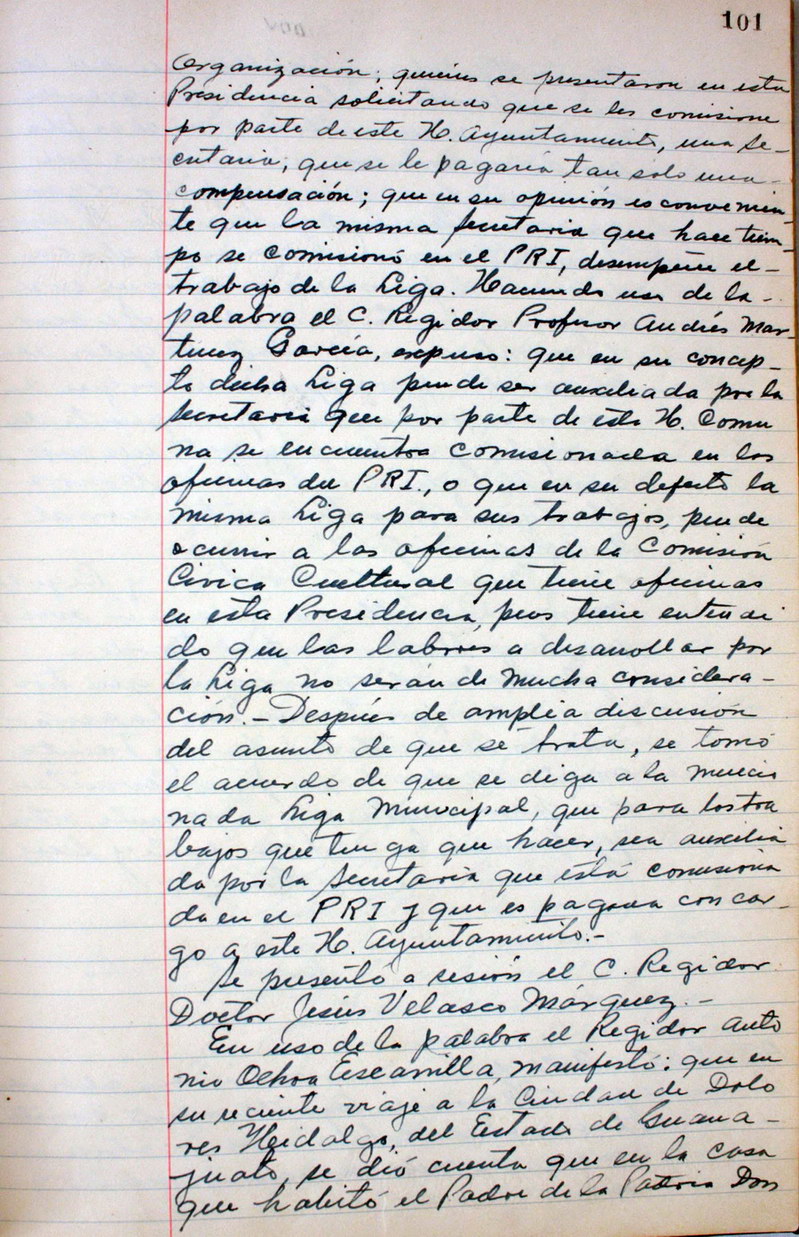 101
Organización; quienes se presentaron en esta
Presidencia solicitando que se les comisione
por parte de este H. Ayuntamiento, una Se-
cretaria, que se le pagaría tan solo una
compensación; que en su opinión es convenien-
te que la misma Secretaria que hace tiem-
po se comisionó en el PRI, desempeñe el-
trabajo de la Liga. Haciendo uso de la-
palabra el C. Regidor Profesor Andrés Mar-
tínez García, expuso: que en su concep-
to dicha Liga puede ser auxiliada por la
Secretaria que por parte de este H. Comu
na se encuentra comisionada en las
oficinas del PRI., o que en su defecto la
misma Liga para sus trabajos, puede
ocurrir a las oficinas de la Comisión
Cívica Cultural que tiene oficinas
en esta Presidencia, pues tiene entendi
do que las labores a desarrollar por
la Liga no serán de mucha considera-
ción.- Después de amplia discusión
del asunto de que se trata, se tomó
el acuerdo de que se diga a la mencio
nada Liga Municipal, que para los tra
bajos que tenga que hacer, sea auxilia
da por la Secretaria que está comisiona
da en el PRI y que es pagada con car-
go a este H. Ayuntamiento.-
Se presentó a sesión el C. Regidor
Doctor Jesús Velasco Márquez.-
En uso de la palabra el Regidor Anto
nio Ochoa Escamilla, manifestó: que en
su reciente viaje a la Ciudad de Dolo
res Hidalgo, del Estado de Guana-
juato, se dió cuenta que en la casa
que habitó el Padre de la Patria Don